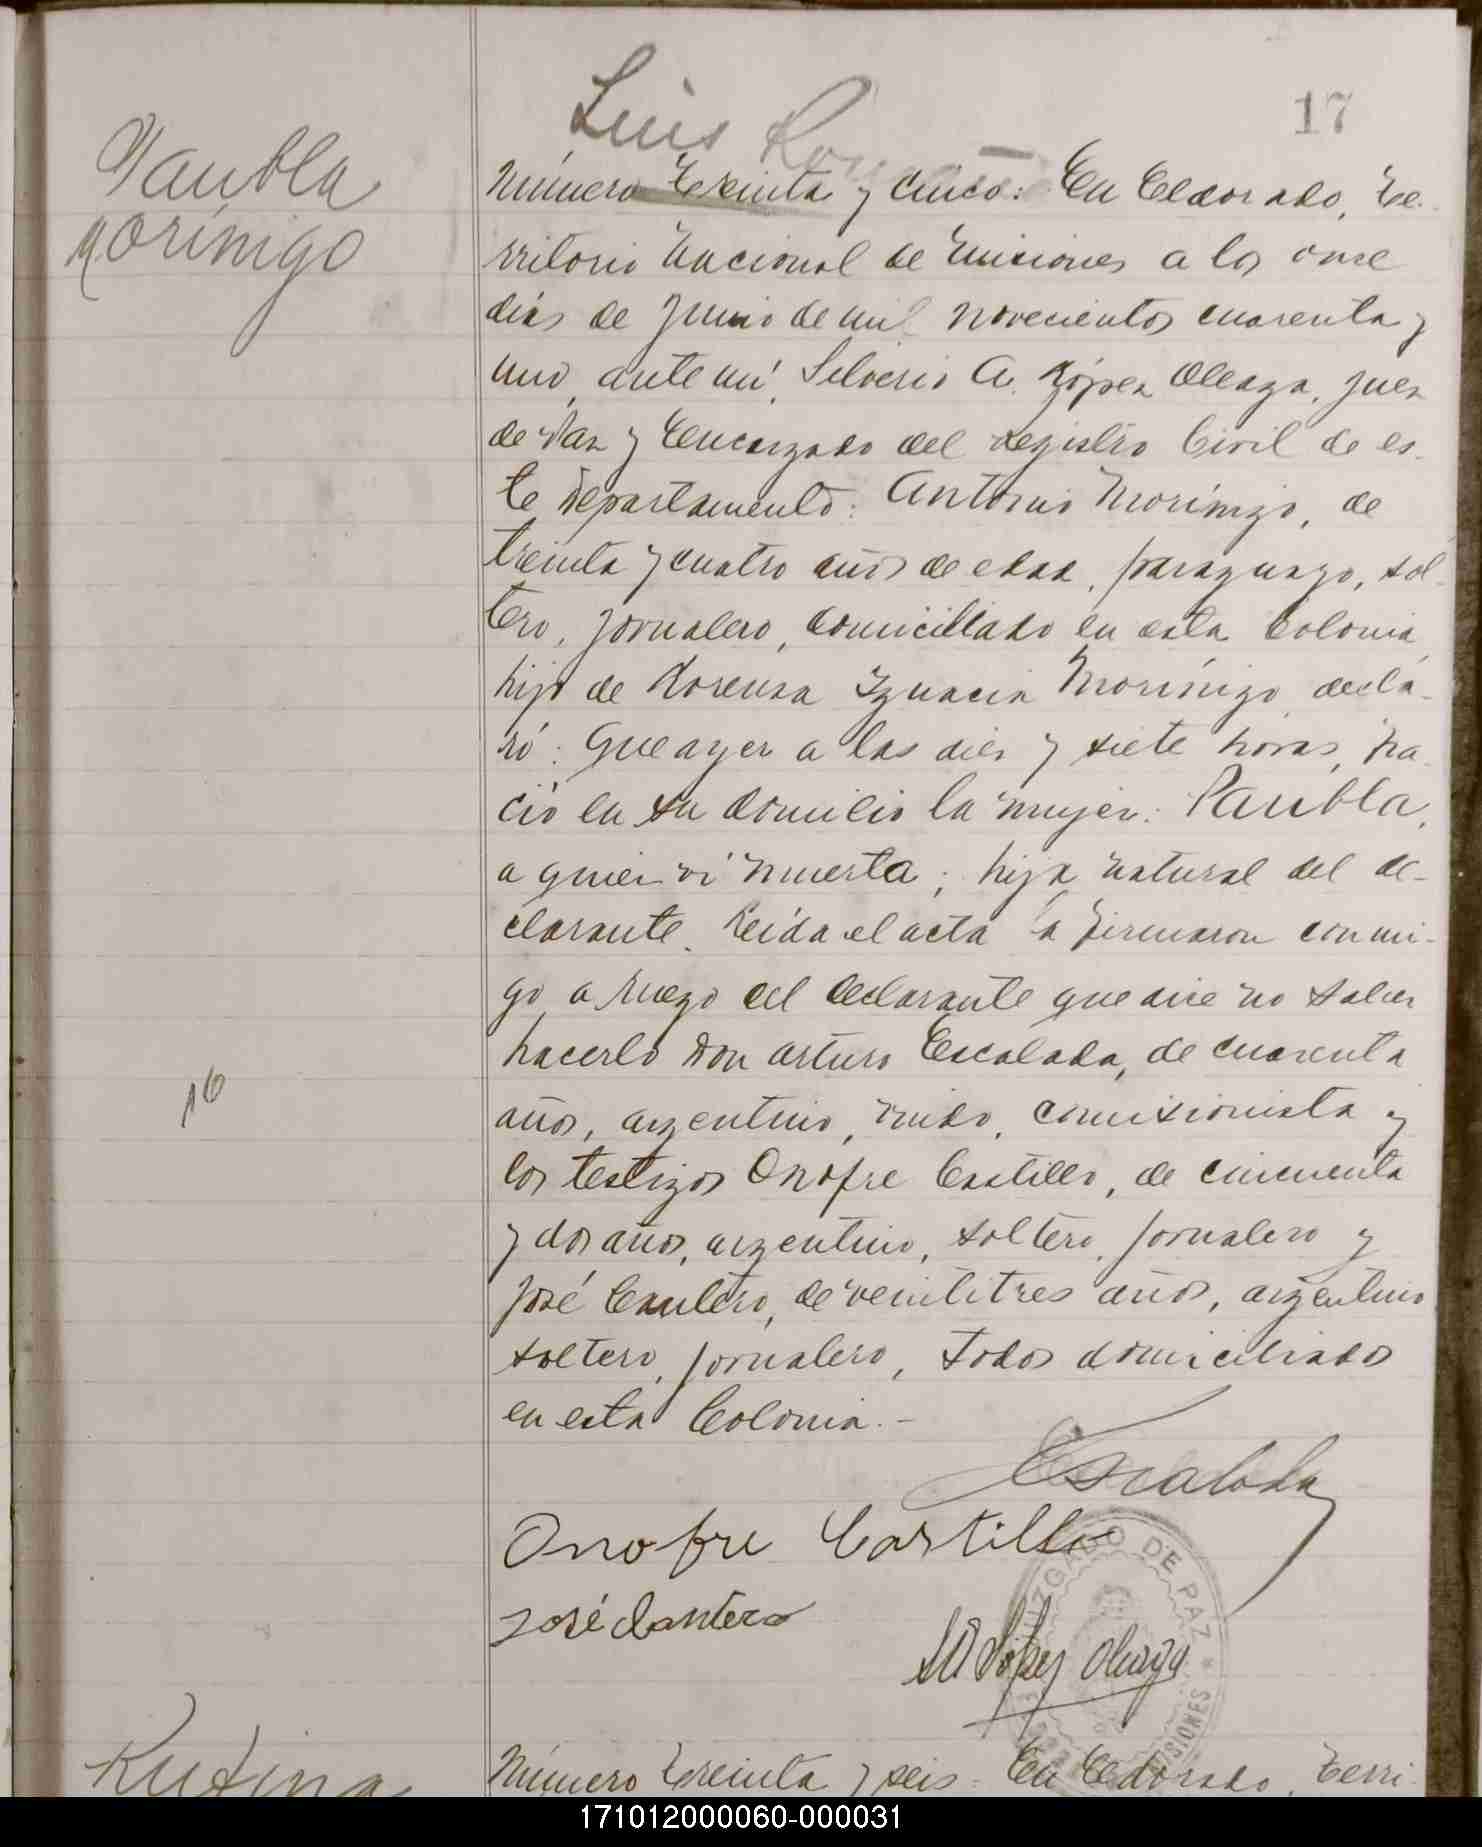 Luis
17
Paubla
Morínigo
Número Treinta y cinco: En Eldorado, Te-
rritorio Nacional de Misiones a los once
días de Junio de mil novecientos cuarenta y
uno, ante mí, Silverio A. López Oleaga, Juez
de Paz y Encargado del Registro Civil de es-
te Departamento: Antonio Morínigo, de
treinta y cuatro años de edad, paraguayo, sol-
tero, jornalero, domiciliado en esta Colonia,
hijo de Lorenza Ignacia Morínigo, decla-
ró: Que ayer a las diez y siete horas, na-
ció en su domicilio la mujer: Paubla,
a quien ví muerta; hija natural del de-
clarante. Leída el acta la firmaron conmi-
go a ruego del declarante que dice no saber
hacerlo Don Arturo Escalada, de cuarenta
años, argentino, viudo, comisionista y
los testigos Onofre Castillo, de cincuenta
y dos años, argentino, soltero, jornalero y
José Cantero, de veintitres años, argentino
soltero, jornalero, todos domiciliados
en esta Colonia.-
16
Escalada
Onofre Castillo
José Cantero
SA López Oleaga
JUZGADO DE PAZ * MISIONES
Número Treinta y seis: En Eldorado, Terri-
171012000060-000031